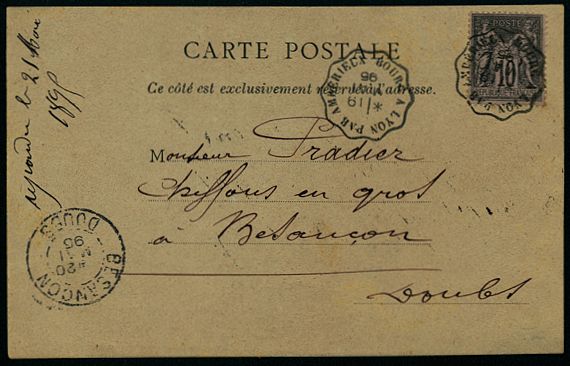 CARTE POSTALE
Ce côté est exclusivement réservé à l'adresse.
Monsieur Pradier
chiffons en gros
à Besançon
Doubs
répondu le 21 Mai
1895
BOURG A LYON PAR AMBERIEUX
19
MAI
95
POSTE
10
BESANCON
DOUBS
20
MAI
95